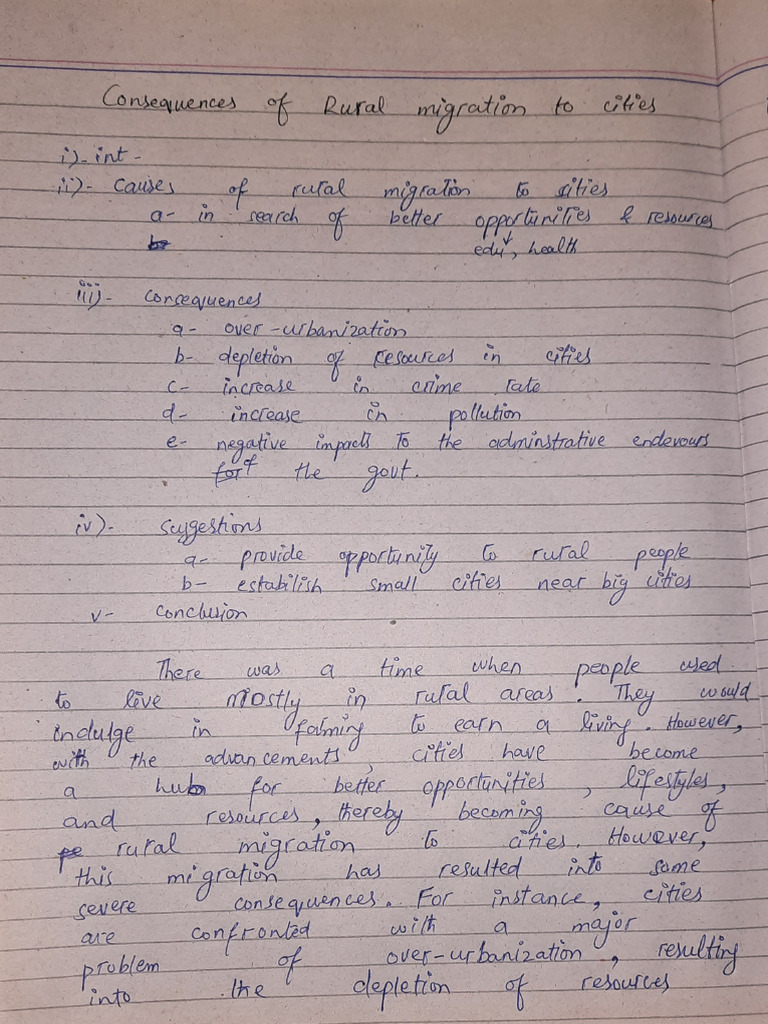 Consequences of Rural migration to cities
i)- int -
ii)- causes of rural migration to cities
a- in search of better opportunities & resources
edu, health
iii)- consequences
a- over-urbanization
b- depletion of resources in cities
c- increase in crime rate
d- increase in pollution
e- negative impacts to the adminstrative endevours
of the govt.
iv)- suggestions
a- provide opportunity to rural people
b- estabilish small cities near big cities
v- conclusion
There was a time when people used
to live mostly in rural areas. They would
indulge in farming to earn a living. However,
with the advancements, cities have become
a hub for better opportunities, lifestyles,
and resources, thereby becoming cause of
rural migration to cities. However,
this migration has resulted into some
severe consequences. For instance, cities
are confronted with a major
problem of over-urbanization, resulting
into the depletion of resources